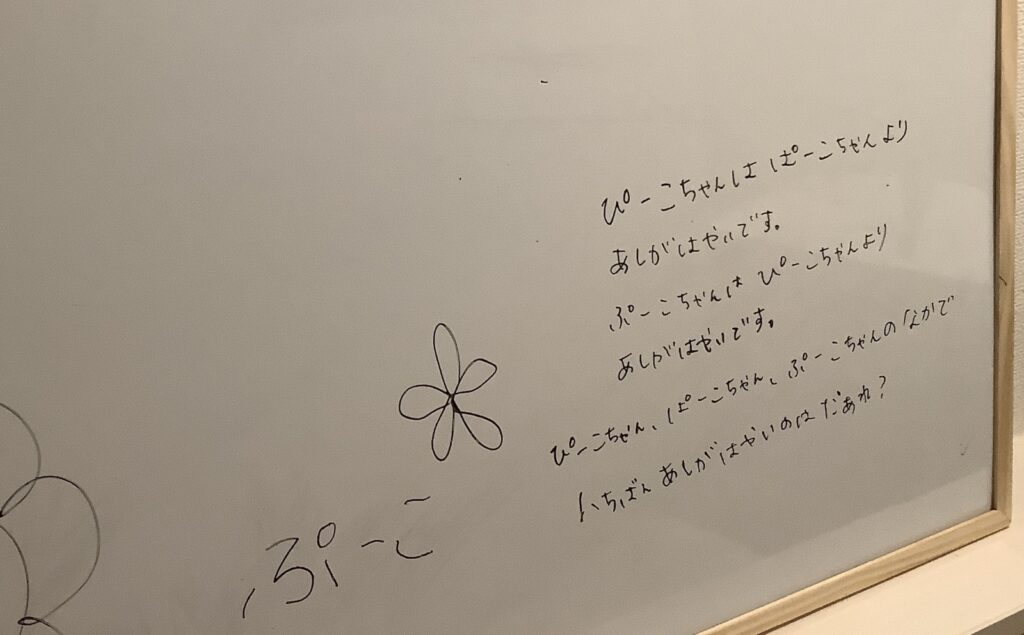 ぴーこちゃんは ぱーこちゃんより
あしがはやいです。
ぷーこちゃんは ぴーこちゃんより
あしがはやいです。
ぴーこちゃん、ぱーこちゃん、ぷーこちゃんのなかで
いちばん あしがはやいのは だあれ?
ぷーこ